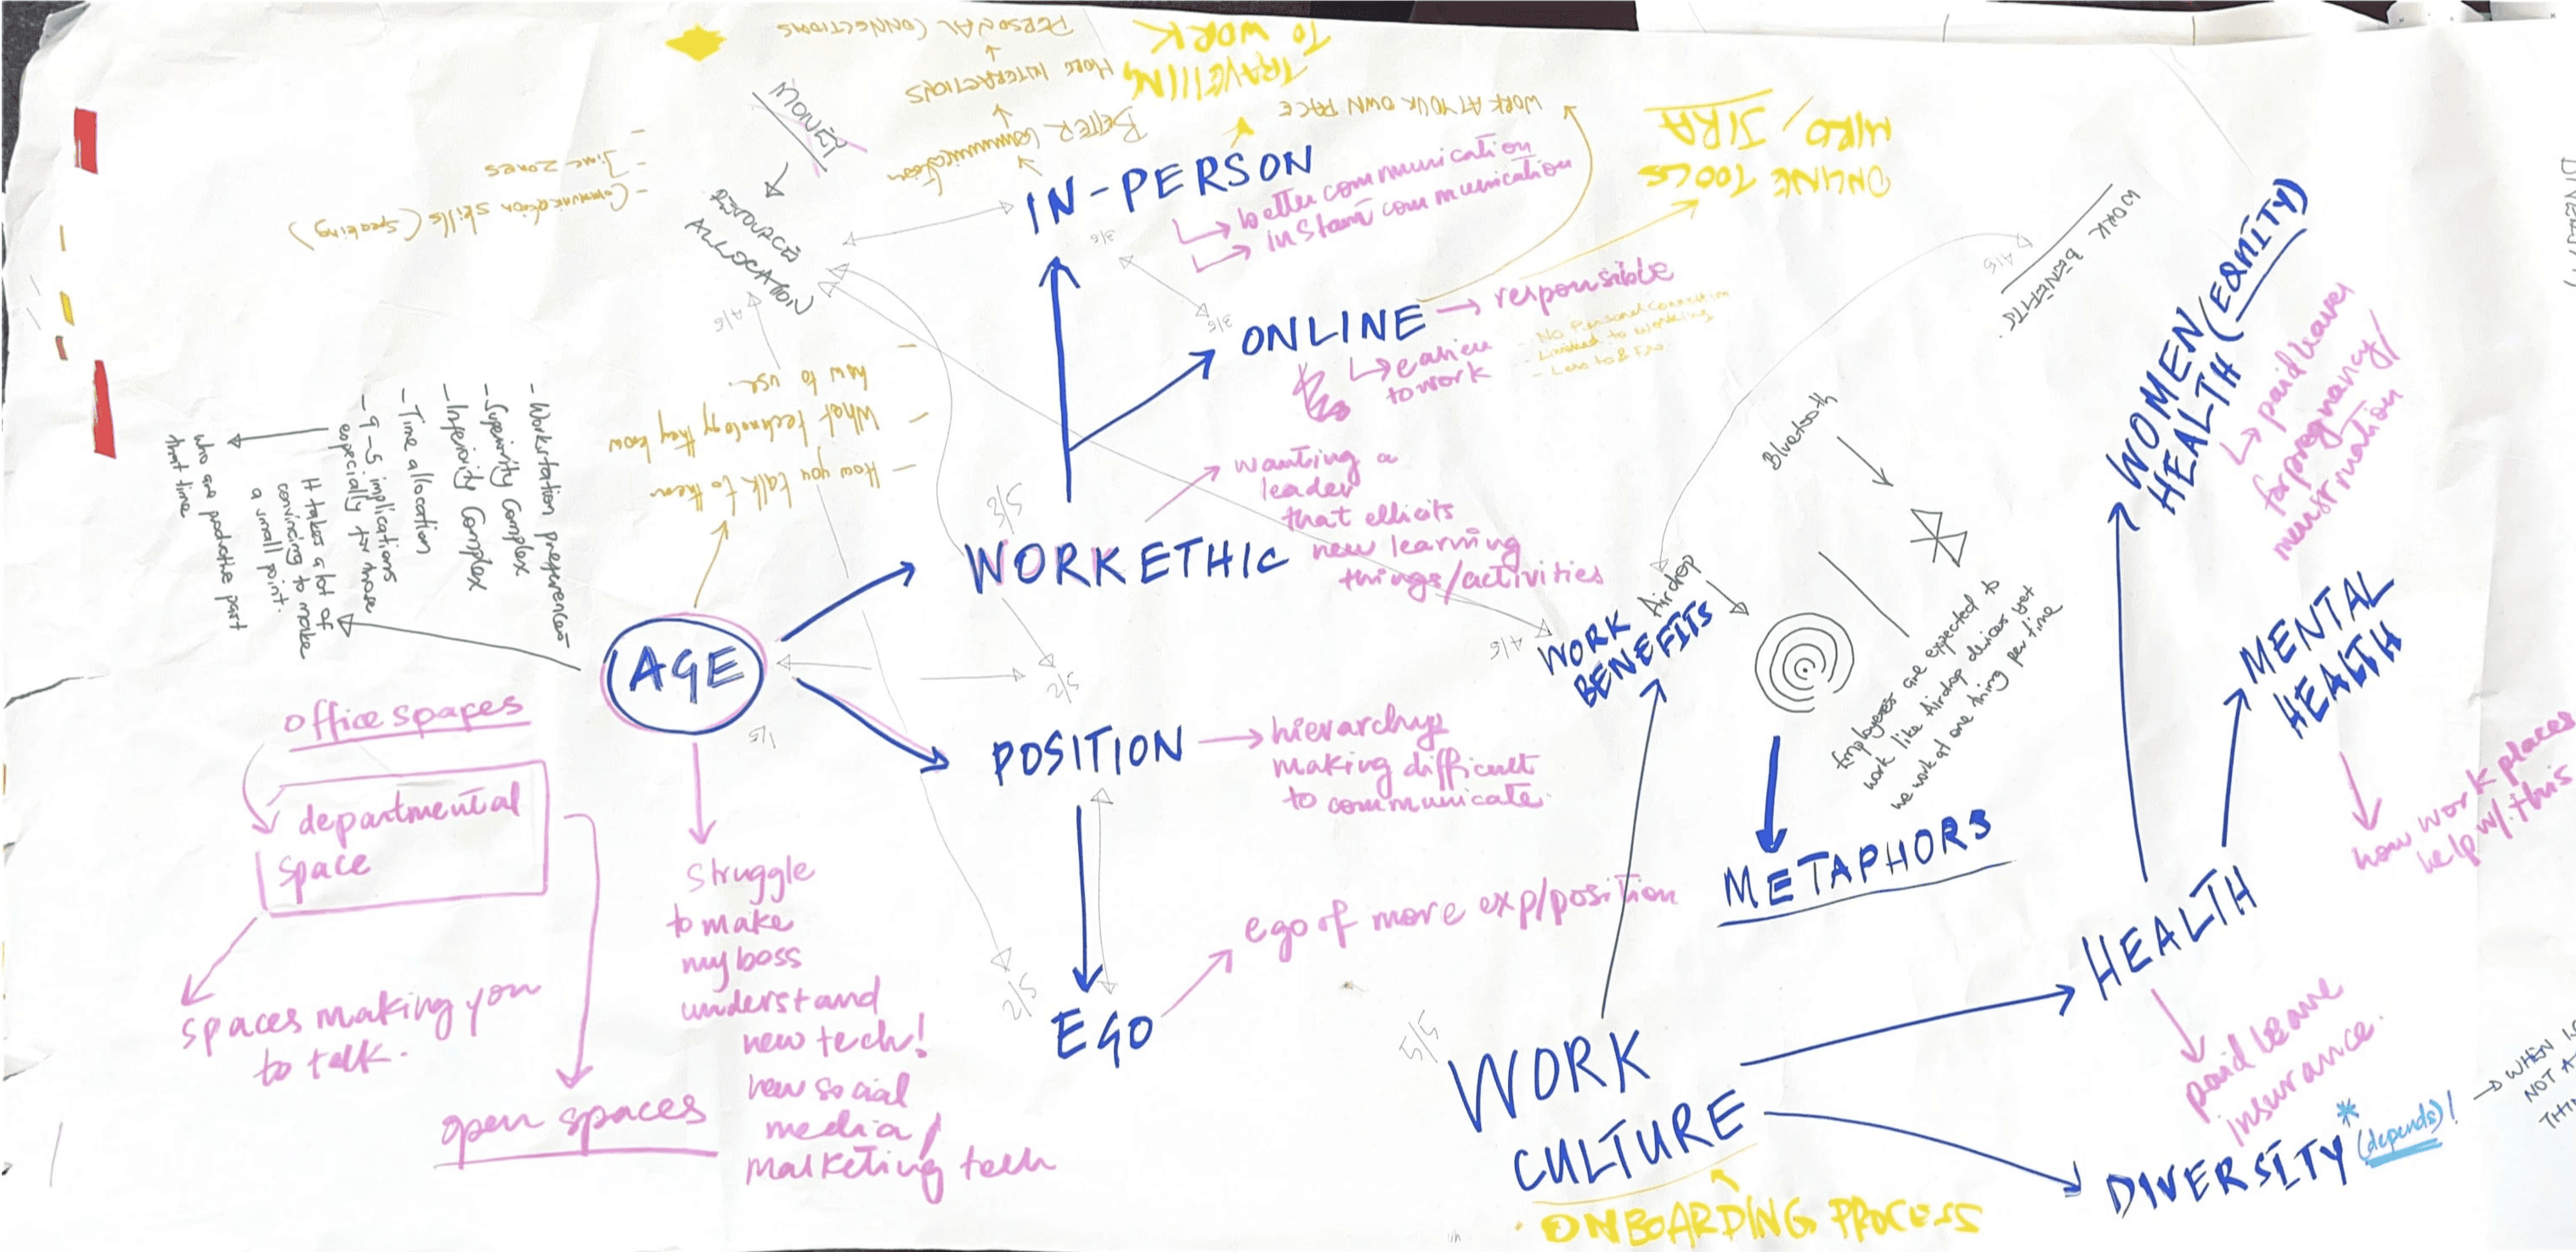 PERSONAL CONNECTIONS
MORE INTERACTIONS
BETTER COMMUNICATION
TRAVELLING
TO WORK
WORK AT YOUR OWN PACE
ONLINE TOOLS
MIRO/JIRA
MONEY
RESOURCES
ALLOCATION
4/5
- Communication skills (speaking)
- Time zones
-
IN-PERSON
3/5
better communication
instant communication
ONLINE
3/5
responsible
easier
to work
- No Personal Connection
- Limited to working
WORK BENEFITS
4/5
- How you talk to them
- What technology they know
how to use.
-
- Workstation preferences
- Superiority Complex
- Inferiority Complex
- Time allocation
- 9-5 implications
especially for those
who are productive part
that time
It takes a lot of
convincing to make
a small point.
WORK ETHIC
3/5
wanting a
leader
that ellicits
new learning
things/activities
AGE
1/5
2/5
POSITION
hierarchy
making difficult
to communicate.
office spaces
departmental
space
spaces making you
to talk.
open spaces
struggle
to make
my boss
understand
new tech!
new social
media/
marketing tech
2/5
EGO
ego of more exp/position
4/5
WORK
BENEFITS
Airdrop
Bluetooth
Employees are expected to
work like Airdrop devices yet
we work at one thing per time
METAPHORS
5/5
WORK
CULTURE
ONBOARDING PROCESS
WOMEN
HEALTH (EQUITY)
paid leaves
for pregnancy/
menstruation
MENTAL
HEALTH
how work places
help w/. this
HEALTH
paid leave
insurance.
DIVERSITY* (depends)!
WHEN
NOT A